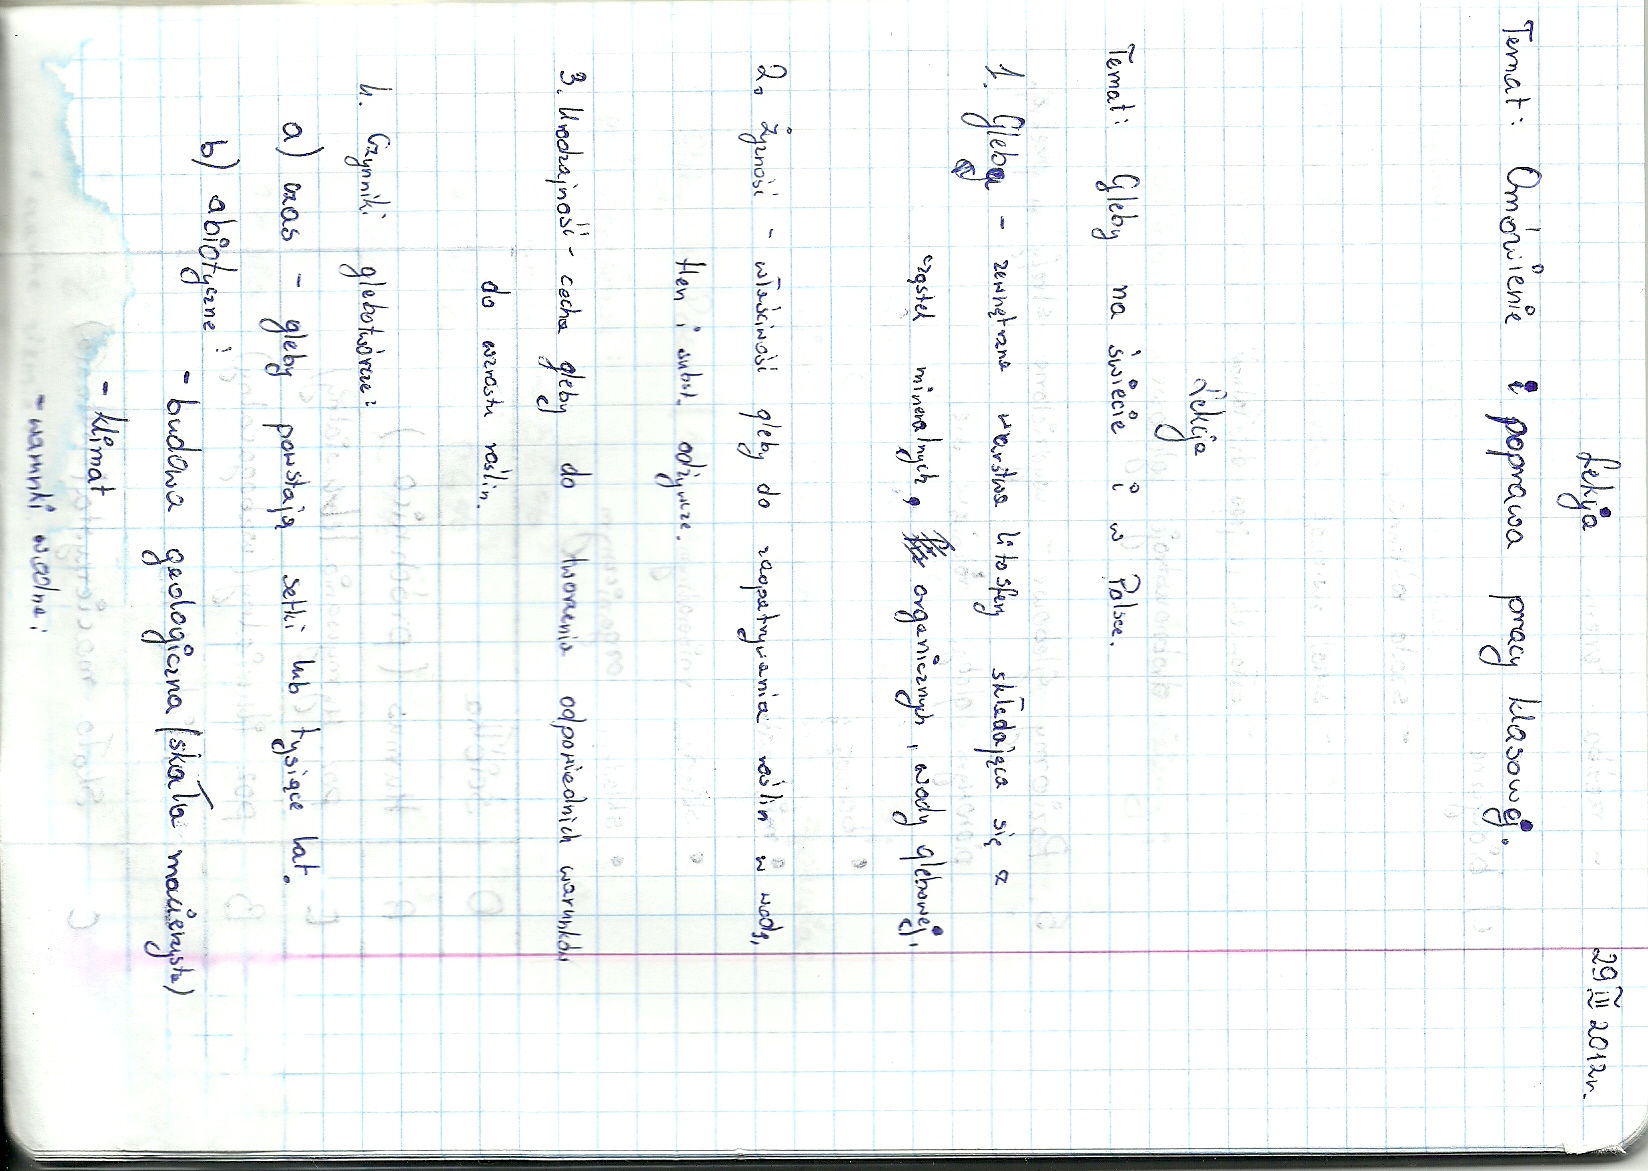 Lekcja
29 III 2012r.
Temat: Omówienie i poprawa pracy klasowej.
Lekcja
Temat: Gleby na świecie i w Polsce.
1. Gleba - zewnętrzna warstwa litosfery składająca się z
cząstek mineralnych, organicznych, wody glebowej.
2. Żyzność - właściwość gleby do zaopatrywania roślin w wodę,
tlen i subst. odżywcze.
3. Urodzajność - cecha gleby do tworzenia odpowiednich warunków
do wzrostu roślin.
4. Czynniki glebotwórcze:
a) czas - gleby powstają setki lub tysiące lat.
b) abiotyczne:
- budowa geologiczna (skała macierzysta)
- klimat
- warunki wodne;